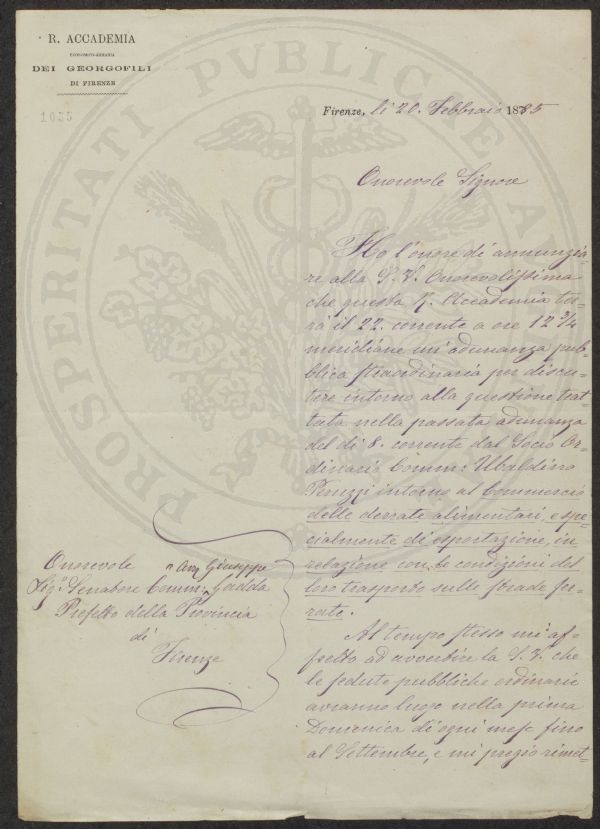 R. ACCADEMIA
ECONOMICO-AGRARIA
DEI GEORGOFILI
DI FIRENZE
1055
Firenze, lì 20. Febbraio 1885
Onorevole Signore
Ho l'onore di annunzia=
re alla S. V. Onorevolissima
che questa R. Accademia ter=
rà il 22. corrente a ore 12 3/4
meridiane un'adunanza pub=
blica straordinaria per discu=
tere intorno alla questione trat=
tata nella passata adunanza
del dì 8. corrente dal Socio Or=
dinario Comm: Ubaldino
Peruzzi intorno al Commercio
delle derrate alimentari, e spe=
cialmente di esportazione, in
relazione con le condizioni del
loro trasporto sulle strade fer=
rate.
Al tempo stesso mi af=
fretto ad avvertire la S. V. che
le sedute pubbliche ordinarie
avranno luogo nella prima
Domenica di ogni mese fino
al Settembre, e mi pregio rimet=
Onorevole
Avv Giuseppe
Sigr. Senatore Comm: Gadda
Prefetto della Provincia
di
Firenze
PROSPERITATI PUBLICAE